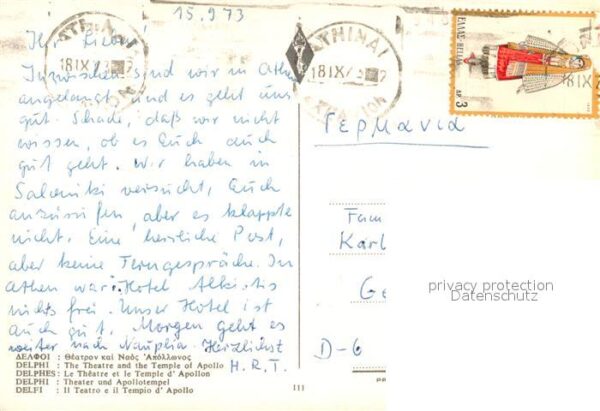 15.9.73
Ihr Lieben!
Inzwischen sind wir in Athen
angelangt und es geht uns
gut. Schade, daß wir nicht
wissen, ob es Euch auch
gut geht. Wir haben in
Saloniki versucht, Euch
anzurufen, aber es klappte
nicht. Eine herrliche Post,
aber keine Ferngespräche. In
Athen war Hotel Alkistis
nichts frei. Unser Hotel ist
auch gut. Morgen geht es
weiter nach Nauplia. Herzlichst
H. R. T.
ΔΕΛΦΟΙ : Θέατρον καὶ Ναὸς Ἀπόλλωνος
DELPHI : The Theatre and the Temple of Apollo
DELPHES : Le Théâtre et le Temple d' Apollon
DELPHI : Theater und Apollotempel
DELFI : Il Teatro e il Tempio d' Apollo
111
ATHINAI
18 IX 73
ΕΛΛΑΣ HELLAS
ΔΡ 3
Γερμανία
Fam
Karl
Ge
D-6
privacy protection
Datenschutz